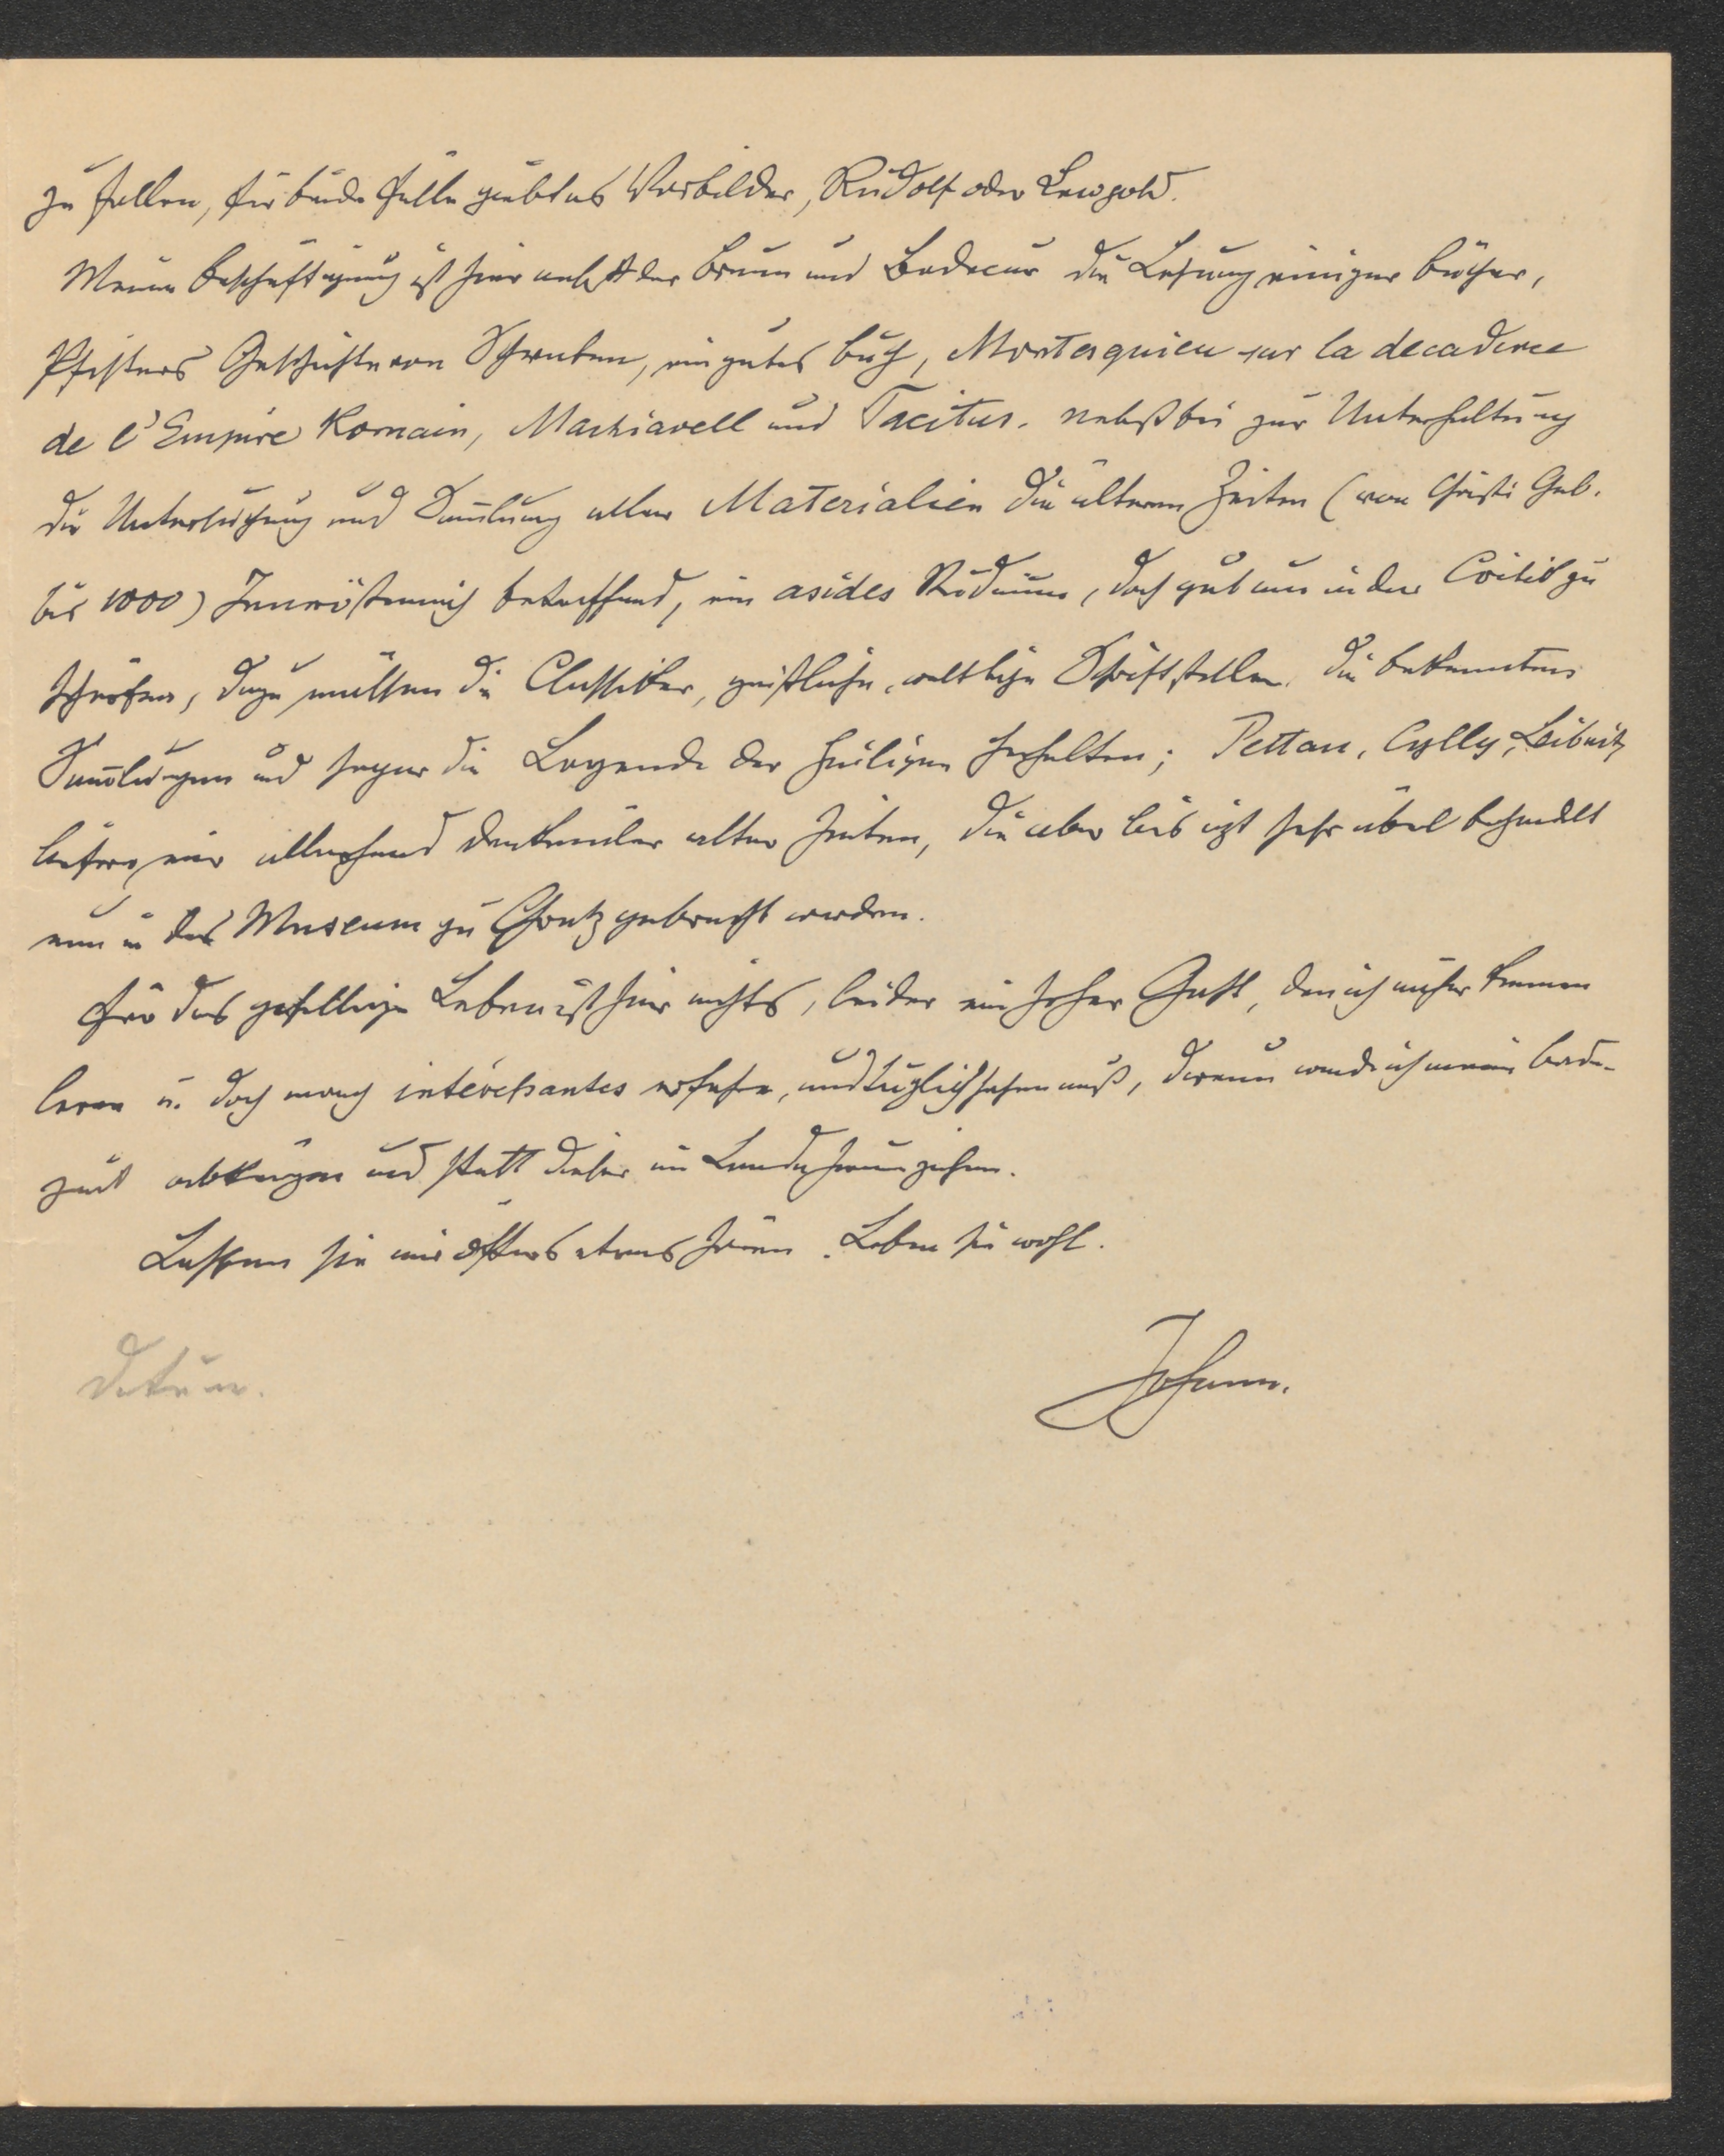 zu fallen, für beide Fälle giebt es Vorbilder, Rudolf oder Leopold.
Meine Beschäftigung ist hier nebst der Brunn und Badecur die Lesung einiger Bücher,
Pfisters Geschichte von Schwaben, ein gutes Buch, Montesquieu sur la decadence
de l'Empire Romain, Machiavell und Tacitus. nebstbei zur Unterhaltung
die Untersuchung und Samlung aller Materialien die älteren Zeiten (von Christi Geb.
bis 1000) Inneröstereich betreffend, ein arides Studium, doch gut um in der Critik zu
schärfen, dazu müssen die Classiker, geistliche, weltliche Schriftsteller, die bekannten
Samlungen und sogar die Legende der Heiligen herhalten; Pettau, Cylly, Leibnitz
liefern mir allerhand Denkmäler alter Zeiten, die aber bis izt sehr übel behandelt
nun in das Museum zu Gratz gebracht werden.
Für das gesellige Leben ist hier nichts, leider ein hoher Gast, den ich näher kennen
leren u. doch manch interessantes erfahre, und täglich sehen muß, darum werde ich meine Bade-
zeit abkürzen und statt dieser im Lande herumziehen.
Lassen sie mir öfters etwas hören. Leben sie wohl.
Datum.
Johann.